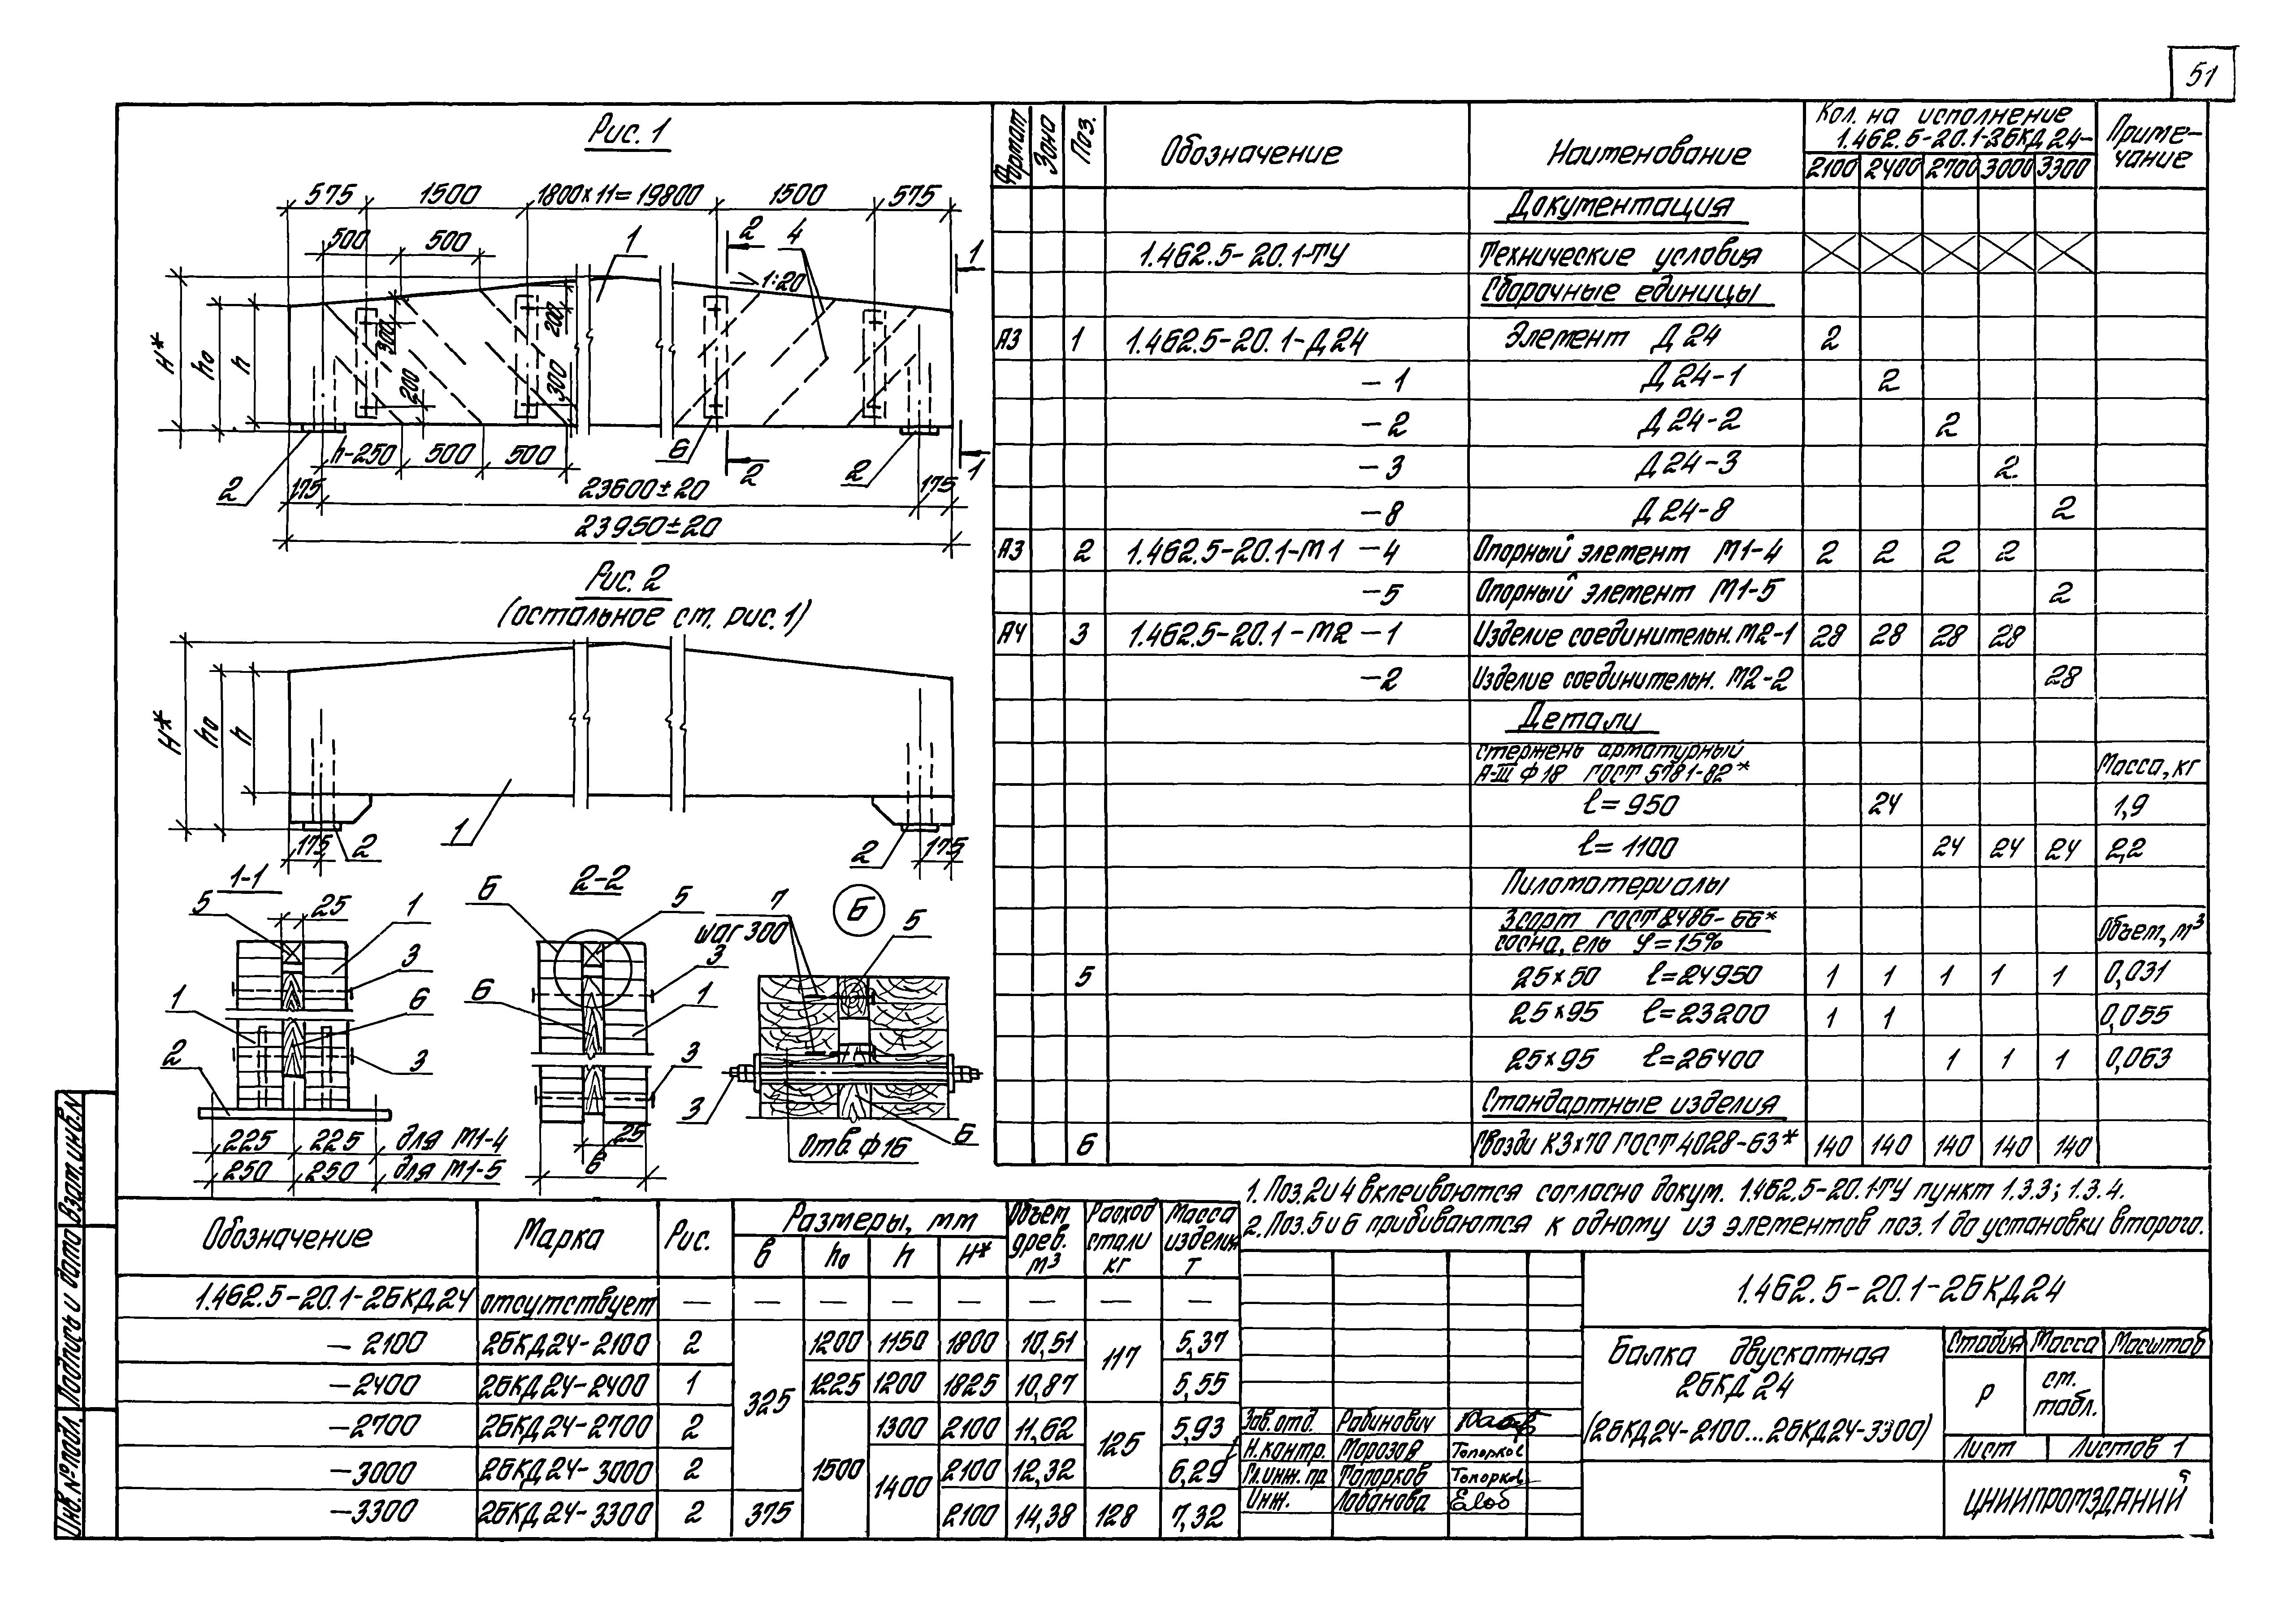 51
Рис. 1
575 1500 1800×11=19800 1500 575
500 500 1 2 4 1
1:20
H* h₀ h 300 200 200 300
2 h-250 500 500 6 2 2 1
175 23600±20 175
23950±20
Рис. 2
(остальное см. рис. 1)
H* h₀ h
175 2 1 2 175
1-1
5 25 1
3
1 6
2 3
225 225 для М1-4
250 250 для М1-5
2-2
Б 5
3
6 1
3
25
в
7
шаг 300
Б
5
3 6
Отв ф16
Формат Зона Поз. Обозначение Наименование Кол. на исполнение 1.462.5-20.1-2БКД24- Примечание
2100 2400 2700 3000 3300
Документация
1.462.5-20.1-ТУ Технические условия
Сборочные единицы
А3 1 1.462.5-20.1-Д24 Элемент Д24 2
-1 Д24-1 2
-2 Д24-2 2
-3 Д24-3 2
-8 Д24-8 2
А3 2 1.462.5-20.1-М1 -4 Опорный элемент М1-4 2 2 2 2
-5 Опорный элемент М1-5 2
А4 3 1.462.5-20.1-М2 -1 Изделие соединительн. М2-1 28 28 28 28
-2 Изделие соединительн. М2-2 28
Детали
стержень арматурный
А-III ф18 ГОСТ 5781-82* Масса, кг
ℓ=950 24 1,9
ℓ=1100 24 24 24 2,2
Пиломатериалы
3сорт ГОСТ 8486-66*
сосна, ель φ=15% Объем, м³
5 25×50 ℓ=24950 1 1 1 1 1 0,031
25×95 ℓ=23200 1 1 0,055
25×95 ℓ=26400 1 1 1 0,063
Стандартные изделия
6 Гвозди К3×70 ГОСТ 4028-63* 140 140 140 140 140
1. Поз. 2 и 4 вклеиваются согласно докум. 1.462.5-20.1-ТУ пункт 1.3.3; 1.3.4.
2. Поз. 5 и 6 прибиваются к одному из элементов поз. 1 до установки второго.
Обозначение Марка Рис. Размеры, мм Объем древ. м³ Расход стали кг Масса изделия т
в h₀ h H*
1.462.5-20.1-2БКД24 отсутствует — — — — — — — —
-2100 2БКД24-2100 2 325 1200 1150 1800 10,51 117 5,37
-2400 2БКД24-2400 1 1225 1200 1825 10,87 5,55
-2700 2БКД24-2700 2 1500 1300 2100 11,62 125 5,93
-3000 2БКД24-3000 2 1400 2100 12,32 6,29
-3300 2БКД24-3300 2 375 2100 14,38 128 7,32
1.462.5-20.1-2БКД24
Балка двускатная
2БКД24
(2БКД24-2100...2БКД24-3300)
Стадия Масса Масштаб
Р см. табл.
Лист Листов 1
ЦНИИПРОМЗДАНИЙ
Зав. отд. Рабинович
Н. контр. Морозов Топорков
Гл. инж. пр Топорков Топорков
Инж. Лобанова
Инв. № подл. Подпись и дата Взам. инв. N